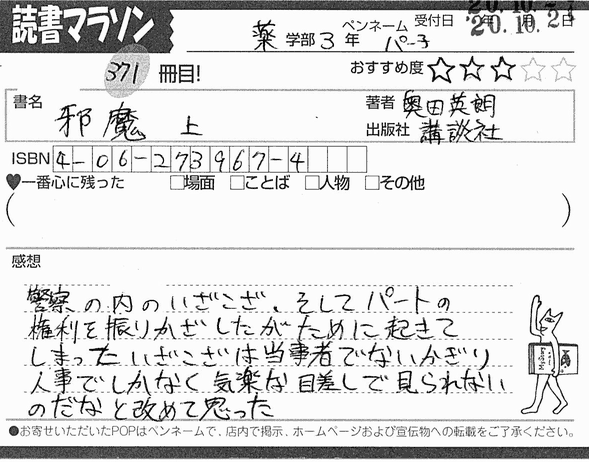 読書マラソン
薬 学部 3 年 ペンネーム パー子 受付日 年 月 日
20.10.2
371 冊目! おすすめ度 ★★★☆☆
書名 邪魔 上
著者 奥田英朗
出版社 講談社
ISBN 4-06-273967-4
♥一番心に残った □場面 □ことば □人物 □その他
( )
感想
警察の内のいざこざ、そしてパートの
権利を振りかざしたがために起きて
しまったいざこざは当事者でないかぎり
人事でしかなく気楽な目差しで見られない
のだなと改めて思った
●お寄せいただいたPOPはペンネームで、店内で掲示、ホームページおよび宣伝物への転載をご了承ください。